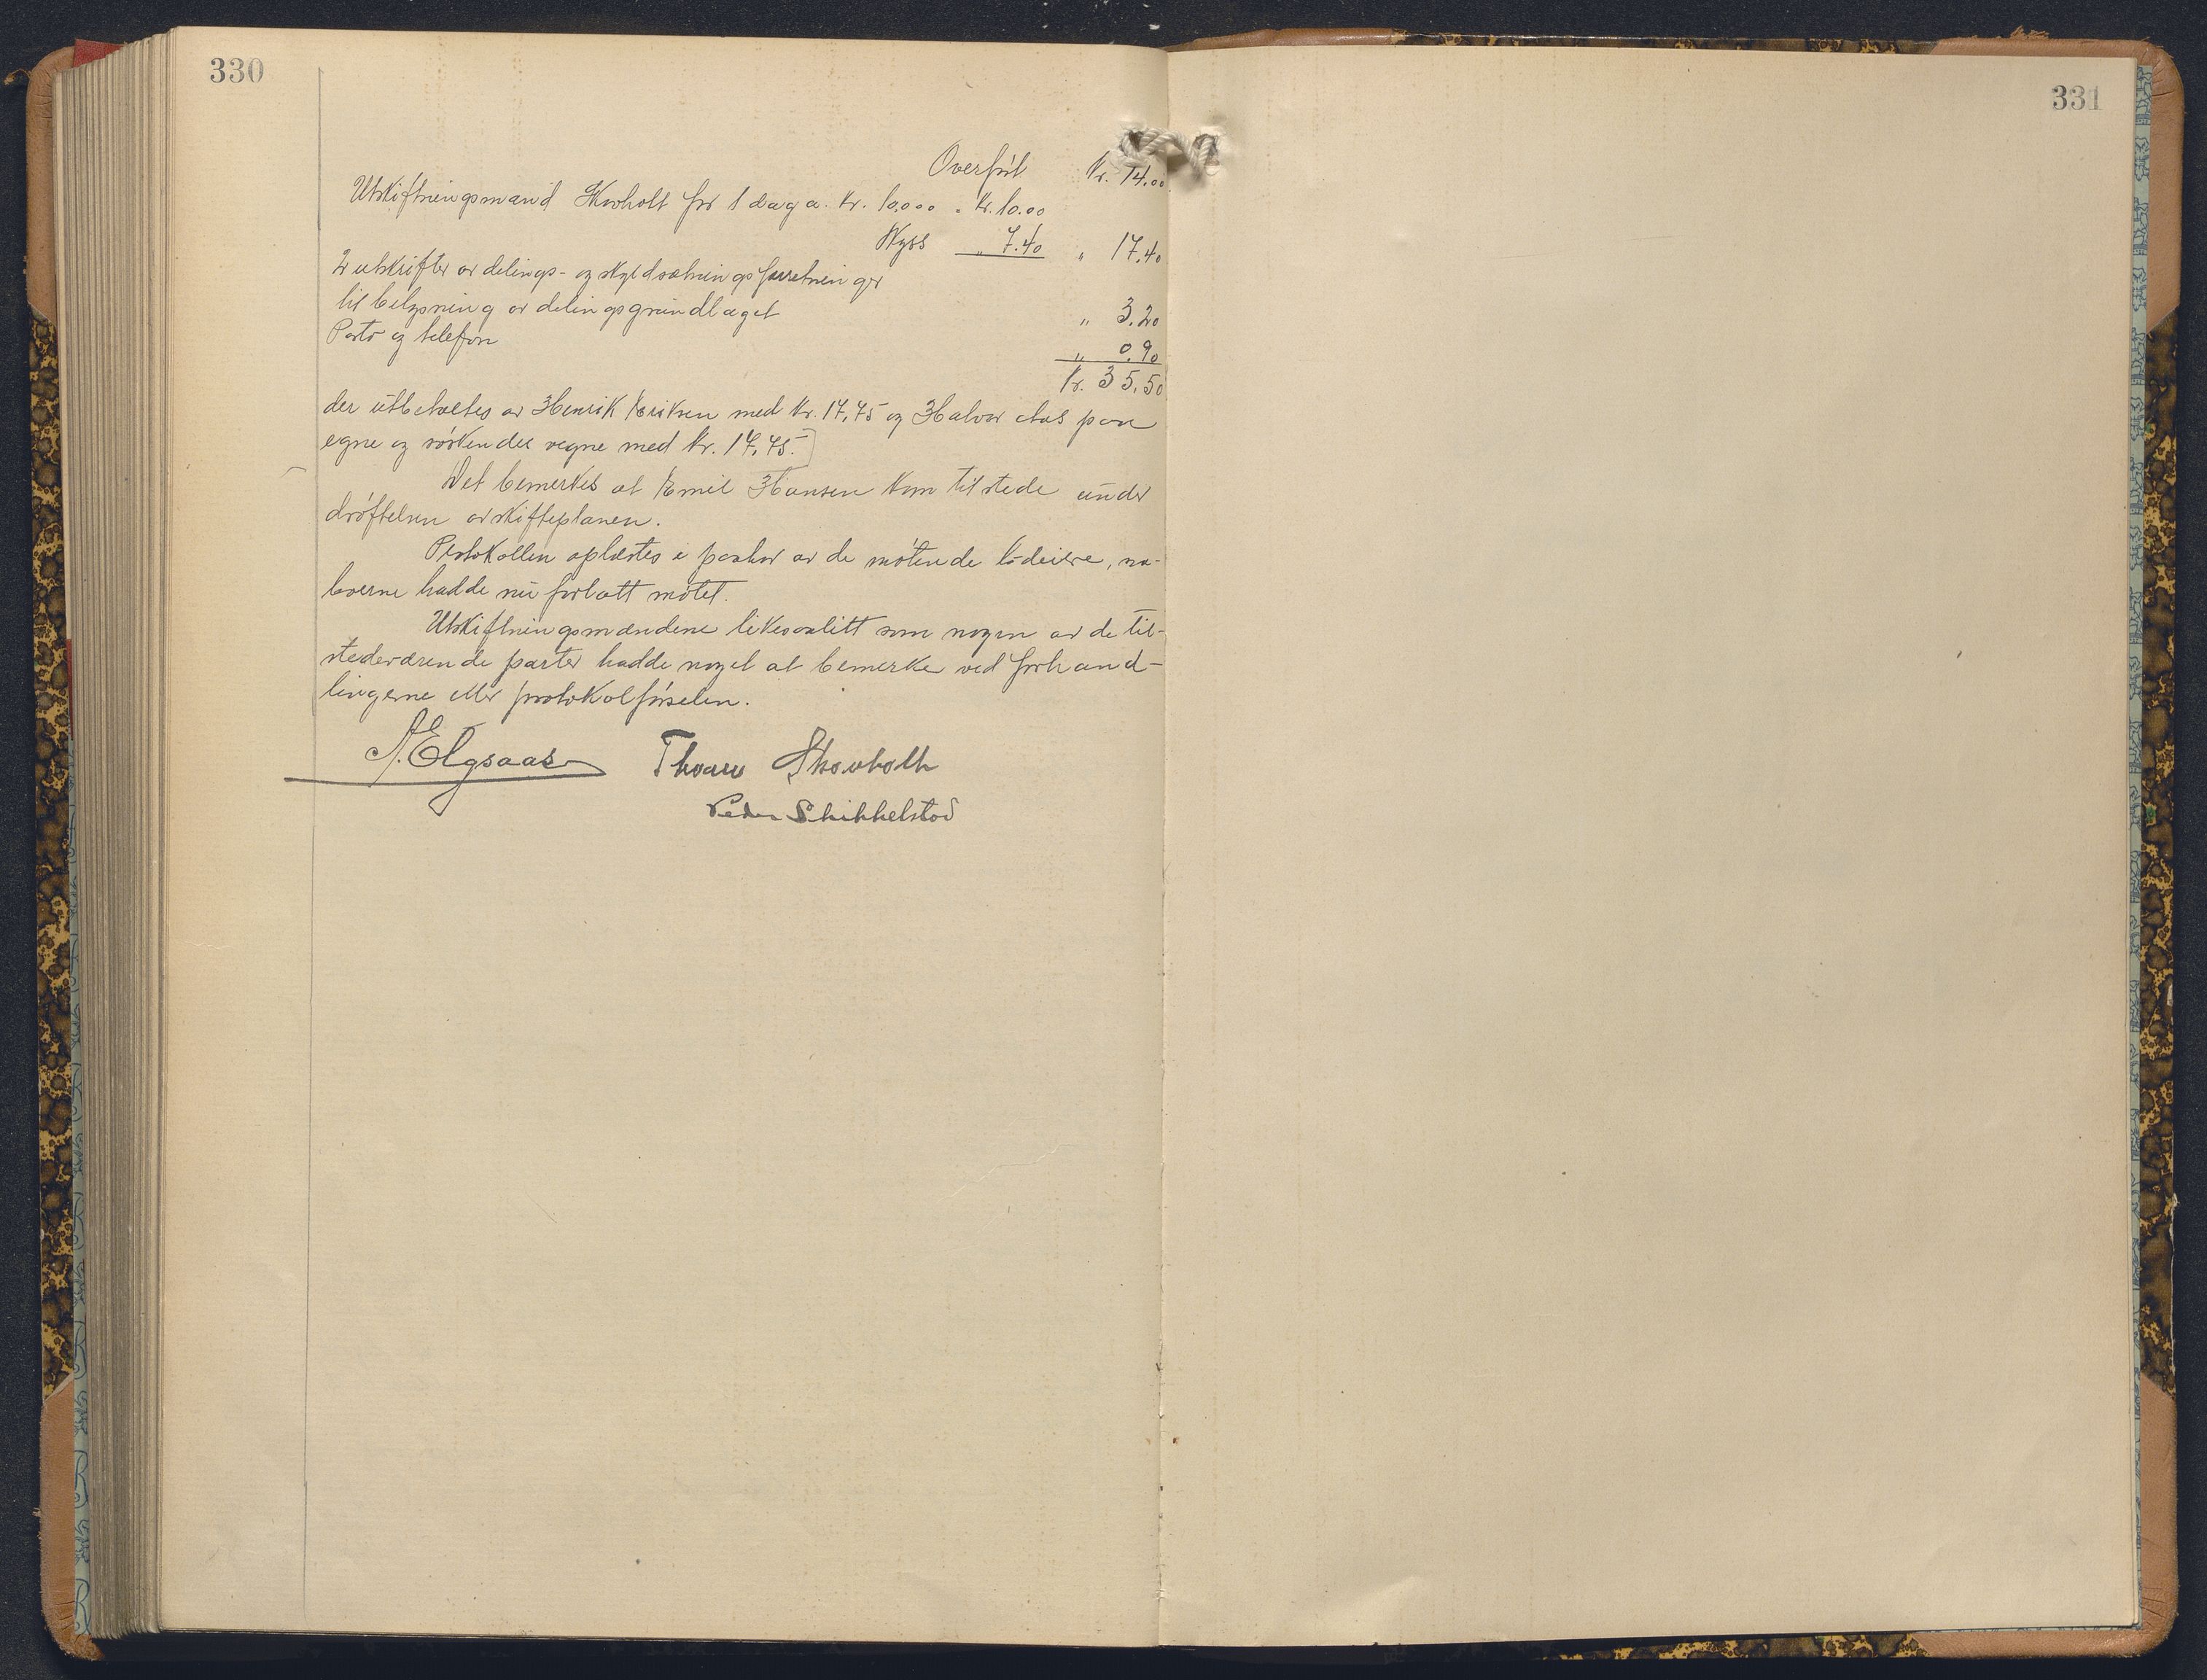 330
331
Overført Kr. 14.00
Utskiftningsmand Skovholt for 1 dag a. kr. 10.000 = Kr. 10.00
Skyss „ 7.40 „ 17.40
2 utskrifter av delings- og skyldsætningsforretninger
til belysning av delingsgrundlaget „ 3.20
Porto og telefon „ 0.90
Kr. 35.50
der utbetaltes av Henrik Eriksen med Kr. 17,75 og Halvor paa
egne og søskendes vegne med kr. 17,75.
Det bemerkes at Emil Hansen kom tilstede under
drøftelsen av skifteplanen.
Protokollen oplæstes i paahør av de møtende lodeiere, na-
boerne hadde nu forlatt møtet.
Utskiftningsmændene likesaalitt som nogen av de til-
stedeværende parter hadde noget at bemerke ved forhand-
lingerne eller protokolførselen.
A. Elgsaas Thomas Skovholth
Peder Skikkelstad